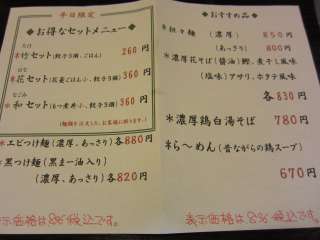 平日限定
お得なセットメニュー
たけ
竹セット(餃子3個、ごはん) 260円
はな
花セット 360円
なごみ
和セット 360円
(麺類を注文した、お客様に限ります。)
*エビつけ麺(濃厚、あっさり)各880円
*黒つけ麺(黒まー油入り)
(濃厚、あっさり)各820円
表示価格は8%税込です。
おすすめ品
*担々麺(濃厚) 850円
(あっさり) 800円
*濃厚花そば(醤油)鰹、煮干し風味
(塩味)アサリ、ホタテ風味
各830円
*濃厚鶏白湯そば 780円
*ら〜めん(昔ながらの鶏スープ)
670円
表示価格は8%税込です。